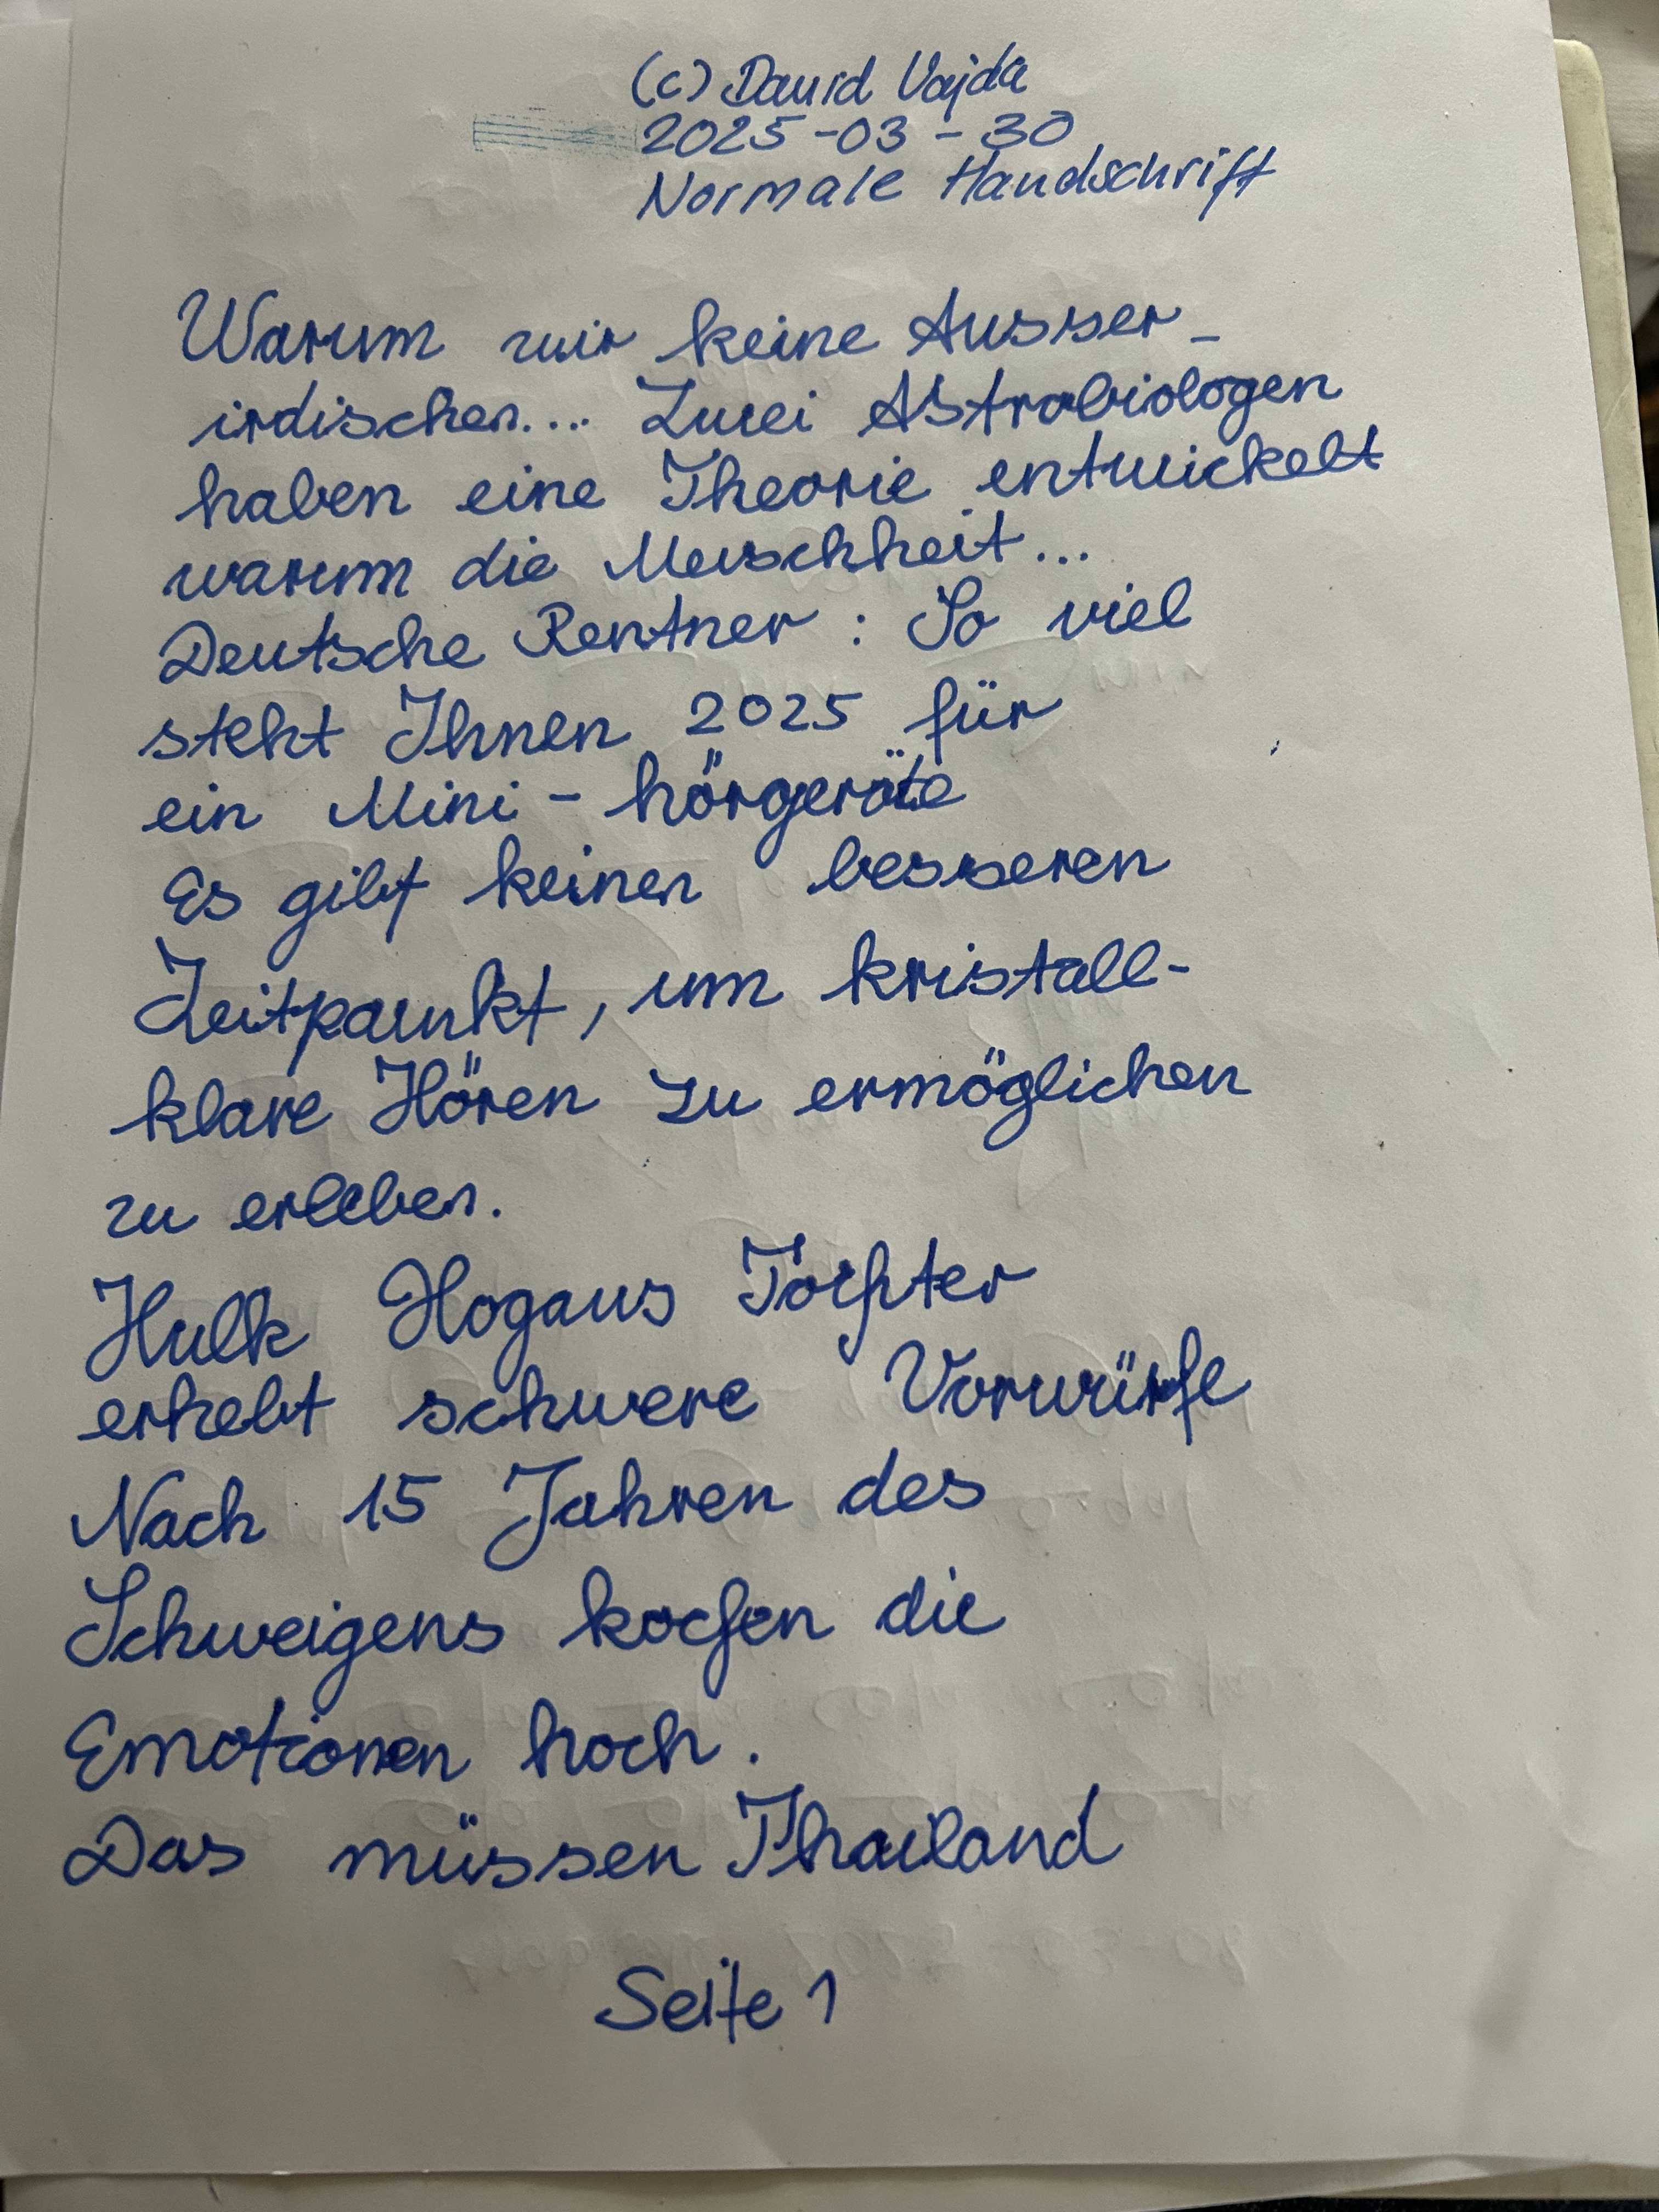 (c) David Vajda
2025-03-30
Normale Handschrift
Warum wir keine Ausser-
irdischen... Zwei Astrobiologen
haben eine Theorie entwickelt
warum die Menschheit...
Deutsche Rentner: So viel
steht Ihnen 2025 für
ein Mini-hörgeräte
Es gibt keinen besseren
Zeitpunkt, um kristall-
klare Hören zu ermöglichen
zu erleben.
Hulk Hogans Tochter
erhebt schwere Vorwürfe
Nach 15 Jahren des
Schweigens kochen die
Emotionen hoch.
Das müssen Thailand
Seite 1